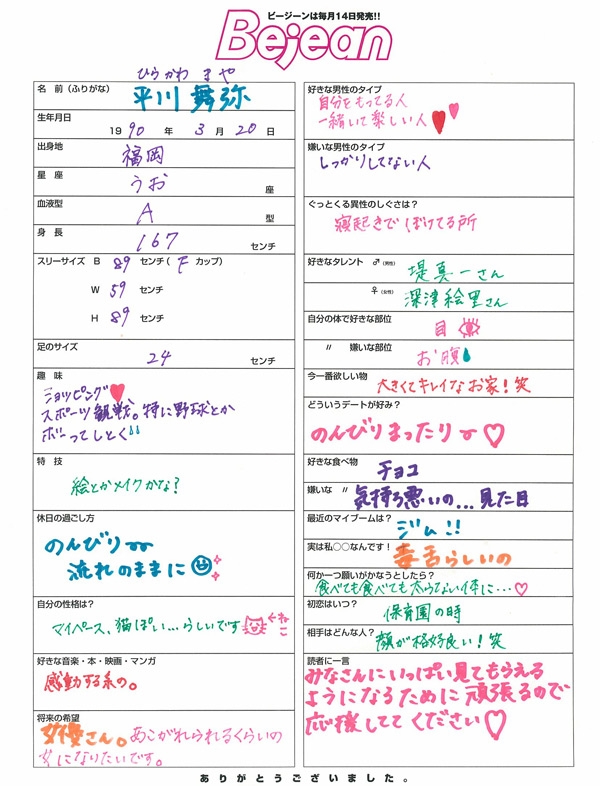 ビージーンは毎月14日発売!!
Bejean
ひらかわ まや
名 前（ふりがな） 平川 舞弥
生年月日
1990年 3月20日
出身地 福岡
星 座 うお 座
血液型 A 型
身 長 167 センチ
スリーサイズ B 89 センチ（Fカップ）
W 59 センチ
H 89 センチ
足のサイズ 24 センチ
趣 味
ショッピング♥
スポーツ観戦。特に野球とか
ボーってしとく
特 技
絵とかメイクかな?
休日の過ごし方
のんびり〜
流れのままに
自分の性格は?
マイペース、猫ぽい…らしいです
ねこ
好きな音楽・本・映画・マンガ
感動する系の。
将来の希望
女優さん。あこがれられるくらいの
女になりたいです。
好きな男性のタイプ
自分をもってる人
一緒いて楽しい人♥♥
嫌いな男性のタイプ
しっかりしてない人
ぐっとくる異性のしぐさは?
寝起きでぼけてる所
好きなタレント ♂（男性） 堤真一さん
♀（女性） 深津絵里さん
自分の体で好きな部位 目
〃 嫌いな部位 お腹
今一番欲しい物
大きくてキレイなお家!笑
どういうデートが好み?
のんびりまったり〜♡
好きな食べ物 チョコ
嫌いな 〃 気持ち悪いの…見た目
最近のマイブームは? ジム!!
実は私○○なんです! 毒舌らしいの
何か一つ願いがかなうとしたら?
食べても食べても太らない体に…♡
初恋はいつ? 保育園の時
相手はどんな人? 顔が格好良い!笑
読者に一言
みなさんにいっぱい見てもらえる
ようになるために頑張るので
応援しててください♡
ありがとうございました。